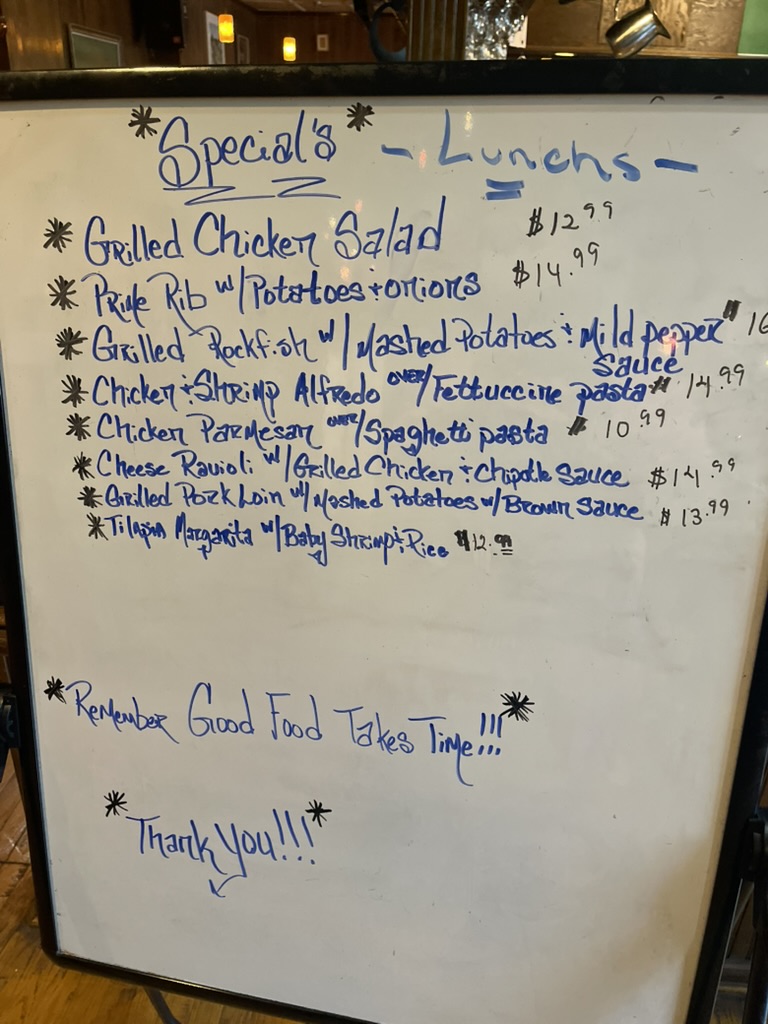 *Special's* - Lunchs -
* Grilled Chicken Salad $12.99
* Prime Rib w/Potatoes + onions $14.99
* Grilled Rockfish w/Mashed Potatoes + Mild pepper $16
Sauce
* Chicken + Shrimp Alfredo over/Fettuccine pasta $14.99
* Chicken Parmesan over/Spaghetti pasta $10.99
* Cheese Ravioli w/Grilled Chicken + Chipotle Sauce $14.99
* Grilled Pork Loin w/Mashed Potatoes w/Brown Sauce $13.99
* Tilapia Margarita w/Baby Shrimp + Rice $12.99
*Remember Good Food Takes Time!!!*
*Thank You!!!*